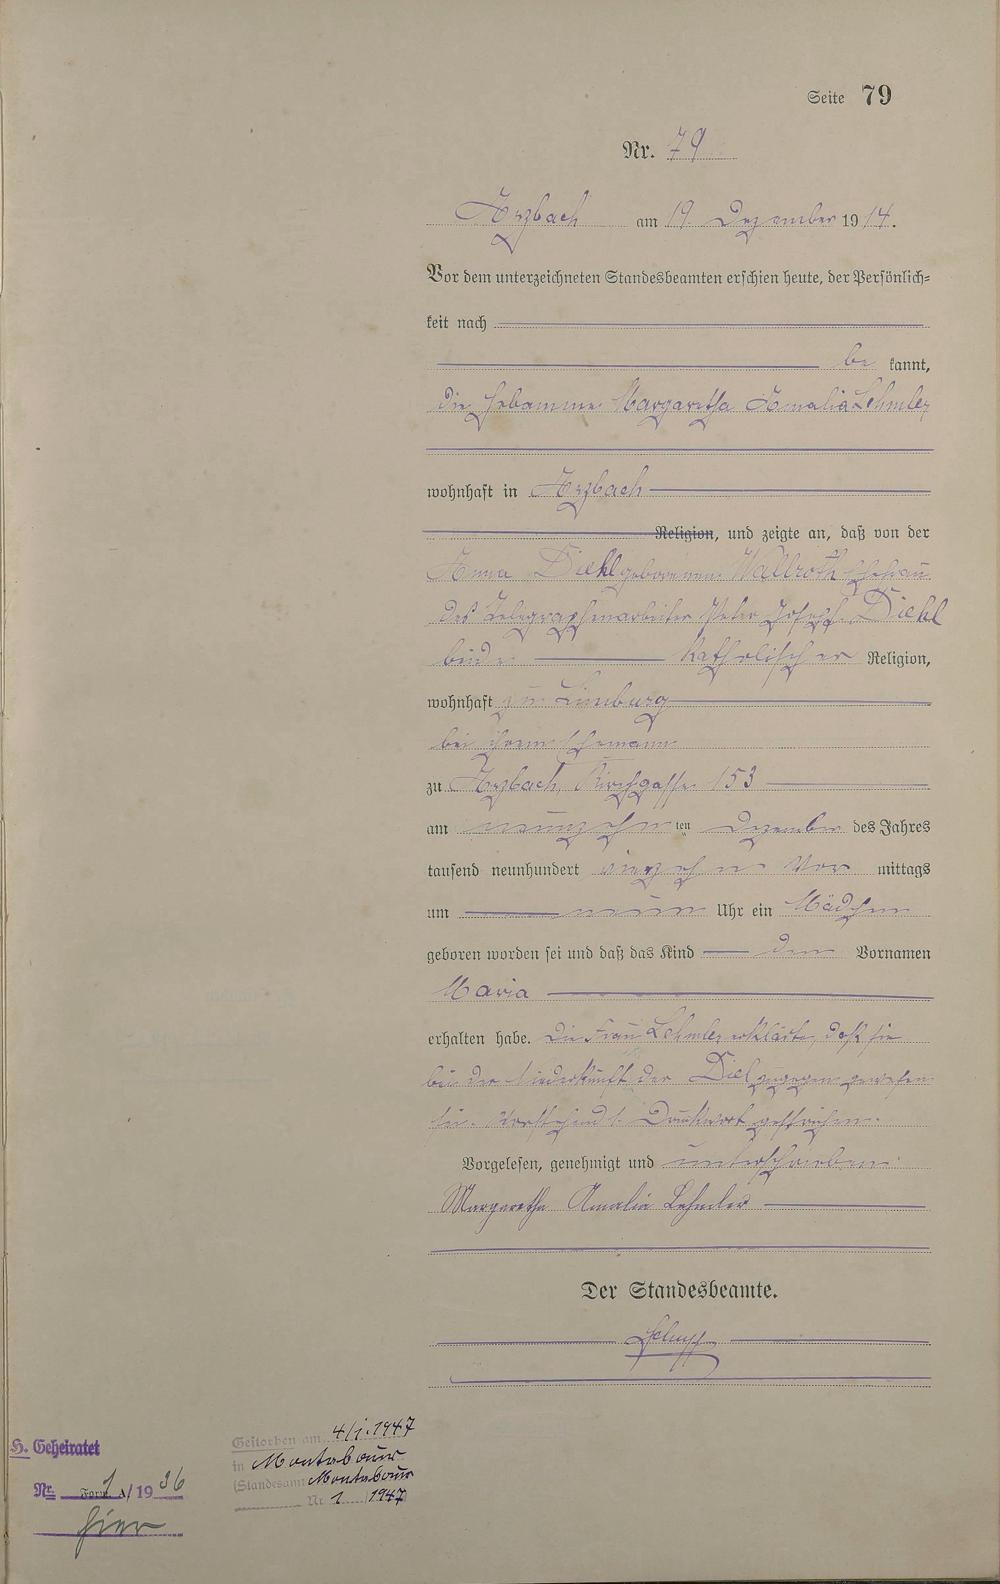 Seite 79
Nr. 79
Arzbach am 19. Dezember 1914.
Vor dem unterzeichneten Standesbeamten erschien heute, der Persönlich=
keit nach
be kannt,
die Hebamme Margaretha Amalia Lehmler
wohnhaft in Arzbach
Religion, und zeigte an, daß von der
Anna Diehl geborenen Wallroth Ehefrau
des Telegraphenarbeiter Peter Josef Diehl
beide katholischer Religion,
wohnhaft zu Limburg
bei ihrem Ehemann
zu Arzbach, Kirchgasse 153
am neunzehn ten Dezember des Jahres
tausend neunhundert vierzehn Vor mittags
um neun Uhr ein Mädchen
geboren worden sei und daß das Kind den Vornamen
Maria
erhalten habe. Die Frau Lehmler erklärte, daß sie
bei der Niederkunft der Diel zugegen gewesen
sei. Vorstehend 1. Druckwort gestrichen.
Vorgelesen, genehmigt und unterschrieben
Margaretha Amalia Lehmler
Der Standesbeamte.
H. Geheiratet
Nr. 1/1936
Form. A
hier
Gestorben am 4/1.1947
in Montabaur
(Standesamt Montabaur
Nr. 1 /1947)